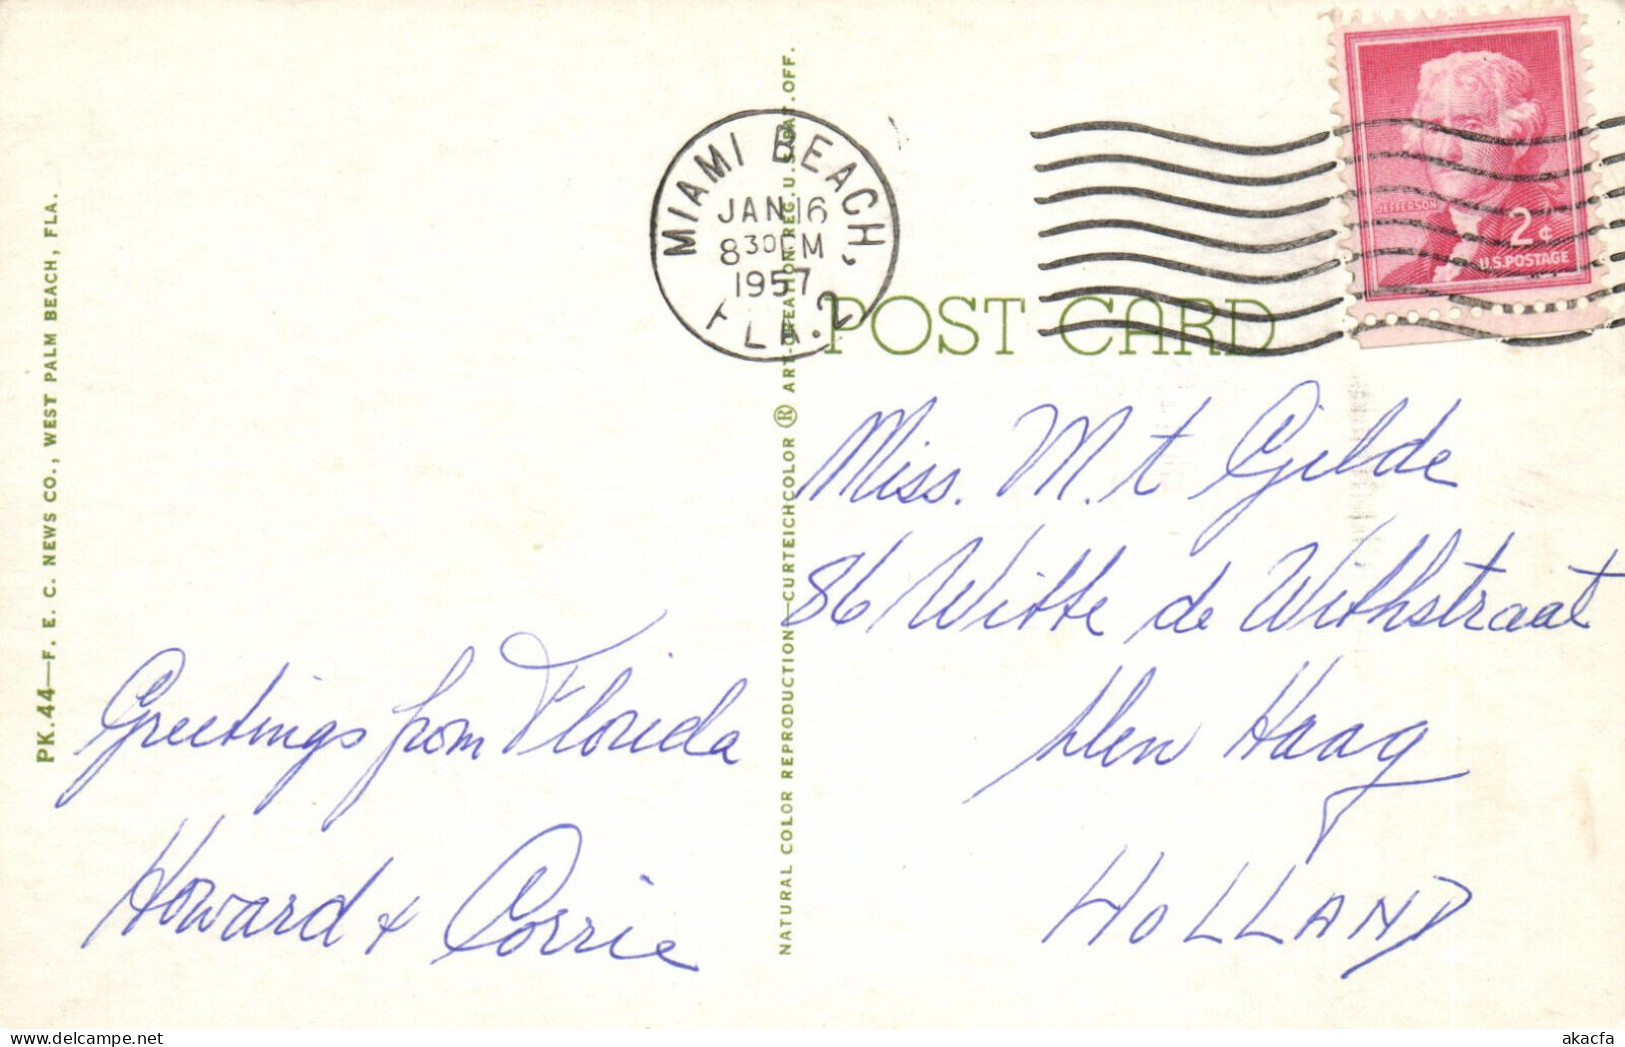 PK.44—F. E. C. NEWS CO., WEST PALM BEACH, FLA.
MIAMI BEACH,
JAN 16
8 30 PM
1957
FLA. 2
JEFFERSON
2¢
U.S. POSTAGE
POST CARD
NATURAL COLOR REPRODUCTION—CURTEICHCOLOR ® ART-CREATION REG. U.S. PAT. OFF.
Greetings from Florida
Howard + Corrie
Miss. M. t Gilde
86 Witte de Withstraat
Den Haag
HOLLAND
akacfa